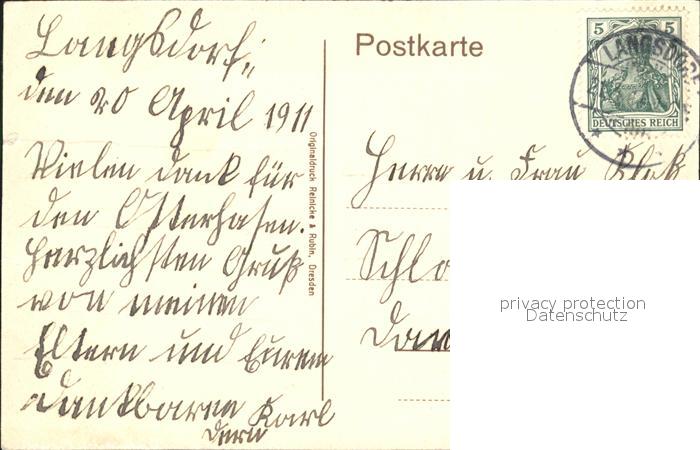 Langsdorf,
den 20 April 1911
Vielen dank für
den Osterhasen.
Herzlichsten Gruß
von meinen
Eltern und Eurem
dankbaren Karl
Originaldruck Reinicke & Rubin, Dresden
Postkarte
5 5
DEUTSCHES REICH
LANGSDORF
Herrn u. Frau Kloß
Schlo
Dar
privacy protection
Datenschutz